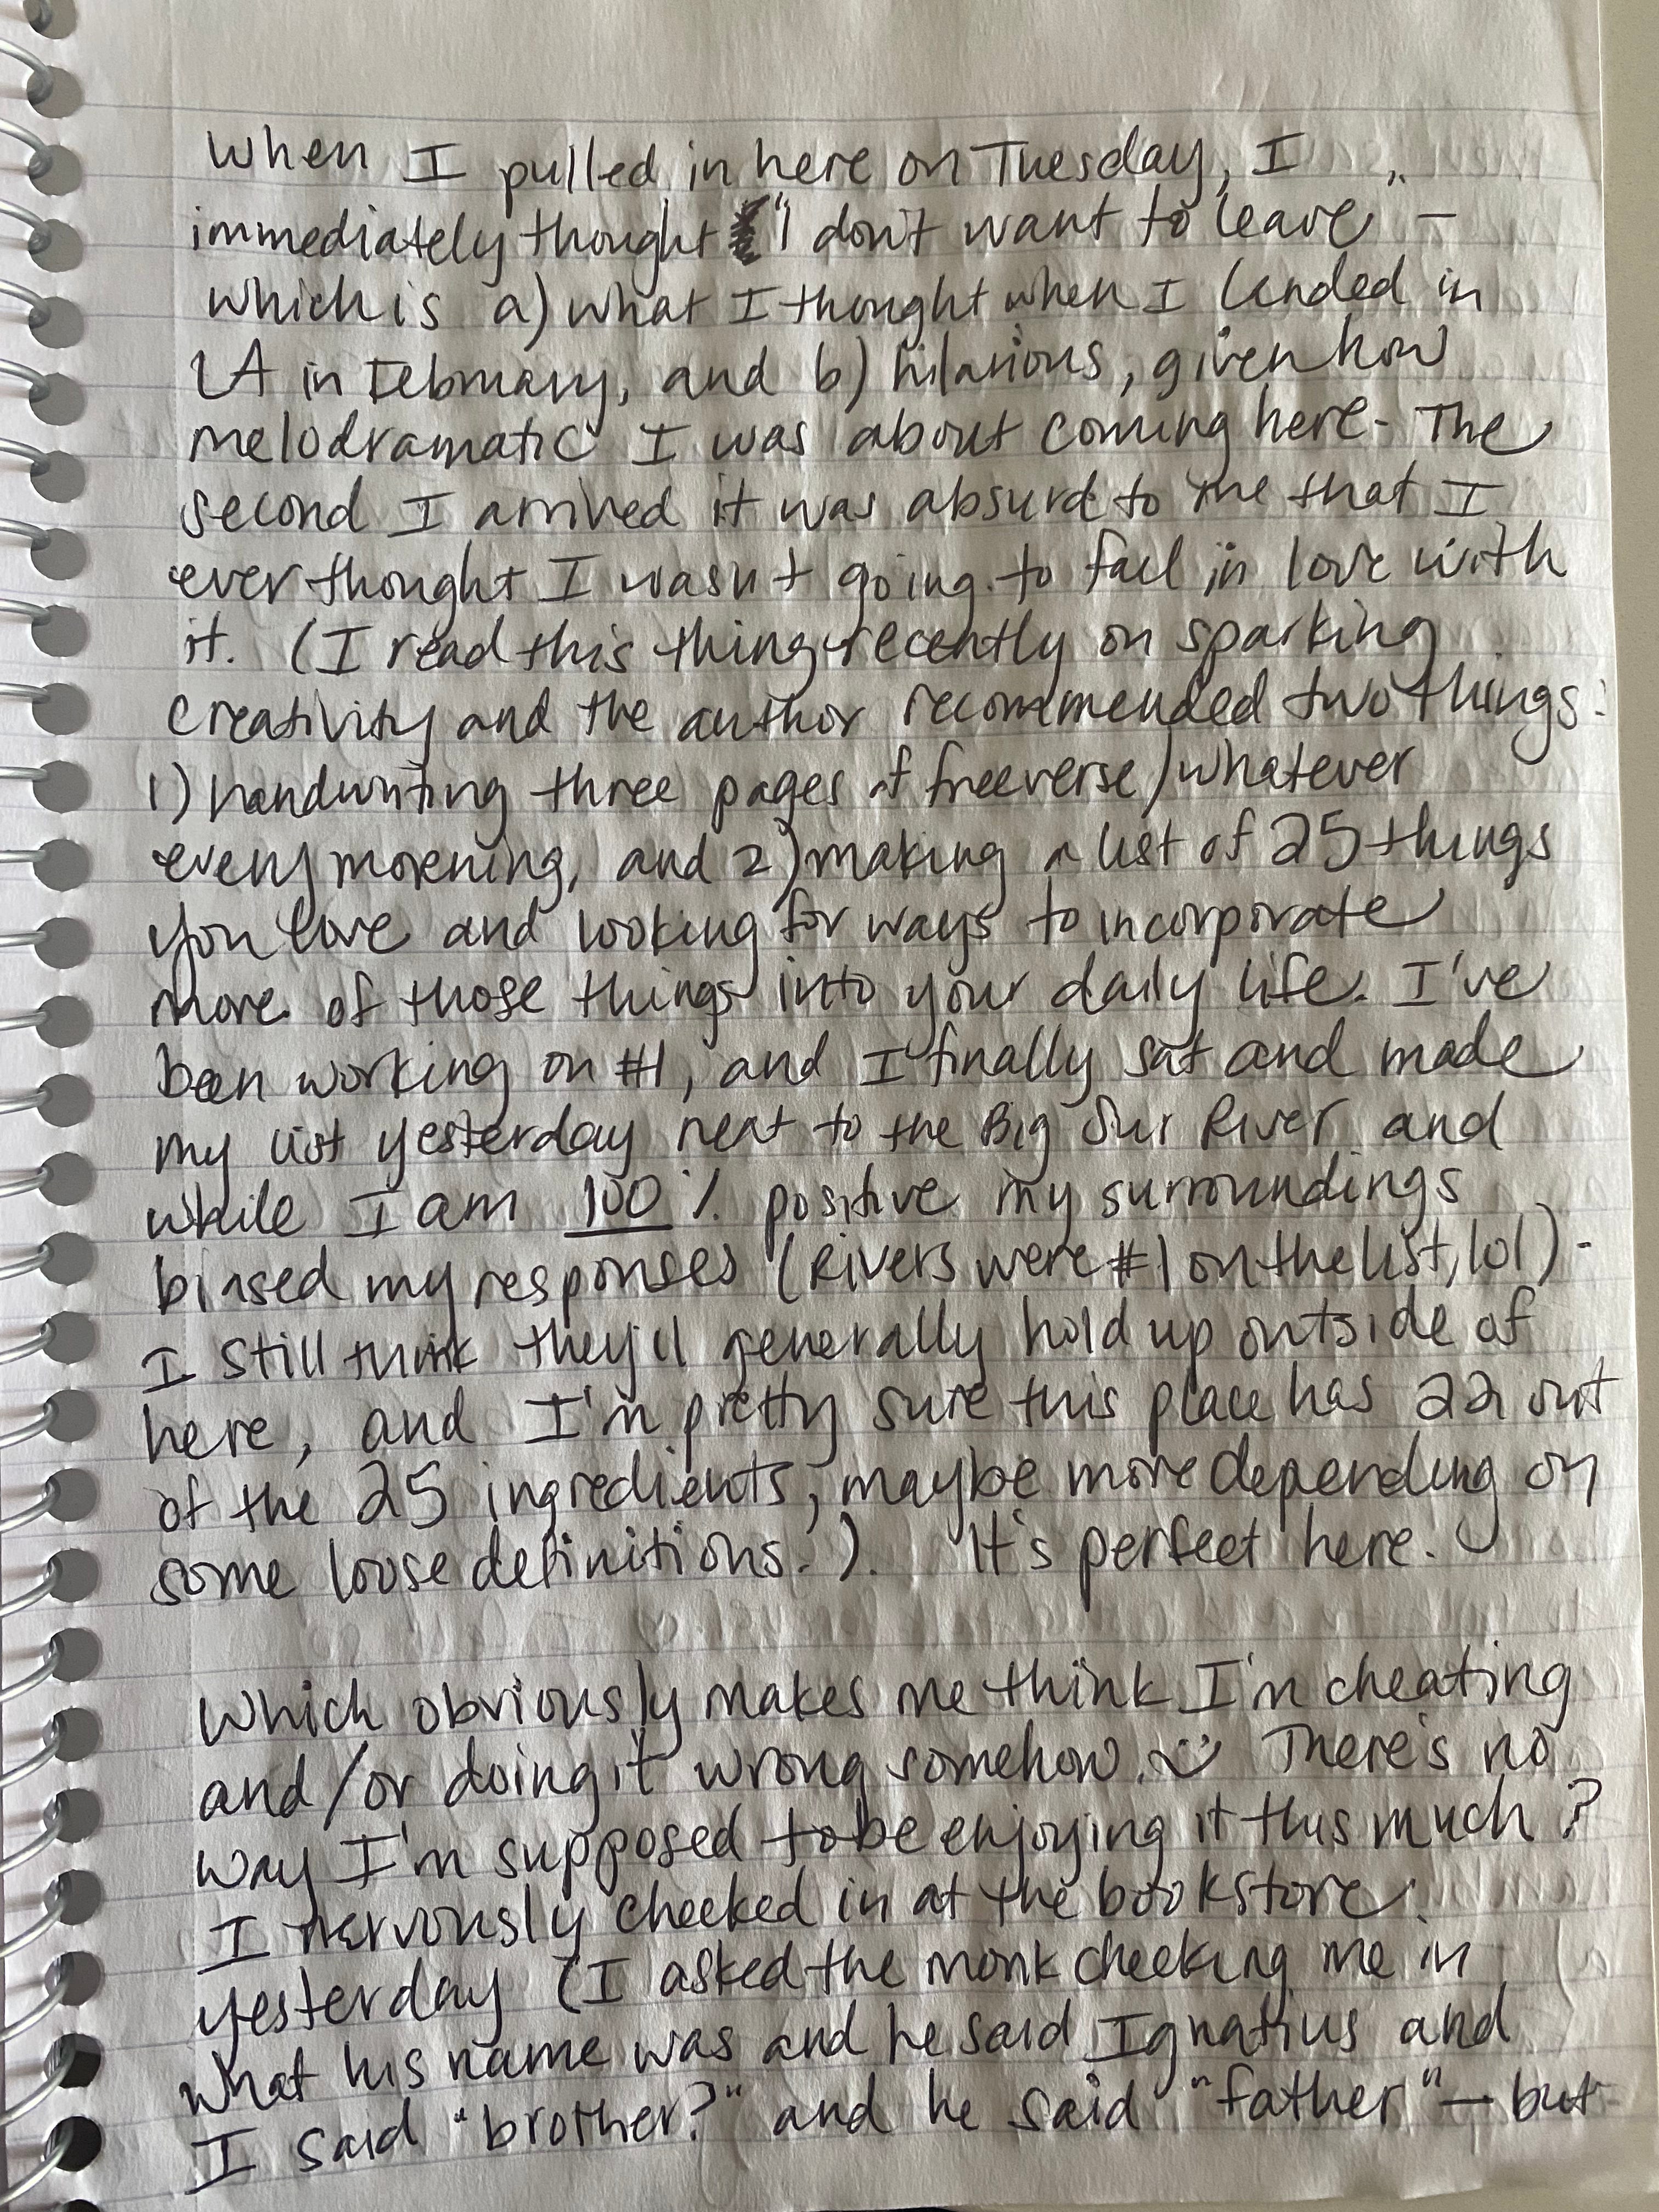 When I pulled in here on Tuesday, I
immediately thought "I don't want to leave" –
which is a) what I thought when I landed in
LA in February, and b) hilarious, given how
melodramatic I was about coming here. The
second I arrived it was absurd to me that I
ever thought I wasn't going to fall in love with
it. (I read this thing recently on sparking
creativity and the author recommended two things:
1) handwriting three pages of freeverse/whatever
every morning, and 2) making a list of 25 things
you love and looking for ways to incorporate
more of those things into your daily life. I've
been working on #1, and I finally sat and made
my list yesterday next to the Big Sur River and
while I am 100% positive my surroundings
biased my responses (Rivers were #1 on the list, lol) -
I still think they'll generally hold up outside of
here, and I'm pretty sure this place has 22 out
of the 25 ingredients, maybe more depending on
some loose definitions.). It's perfect here.
Which obviously makes me think I'm cheating
and/or doing it wrong somehow. :) There's no
way I'm supposed to be enjoying it this much?
I nervously checked in at the bookstore
yesterday (I asked the monk checking me in
what his name was and he said Ignatius and
I said "brother?" and he said "father" – but